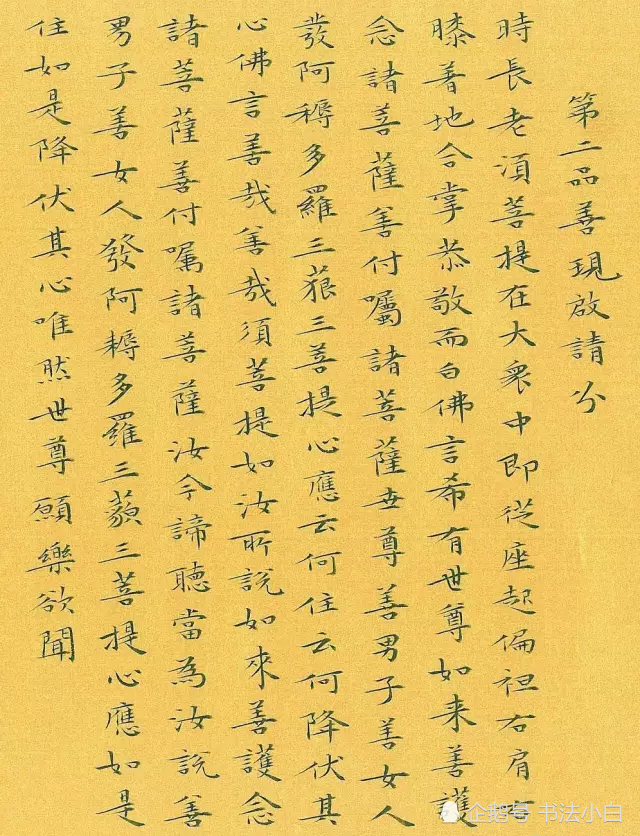 第二品善現啟請分
時長老須菩提在大眾中即從座起偏袒右肩右
膝著地合掌恭敬而白佛言希有世尊如来善護
念諸菩薩善付囑諸菩薩世尊善男子善女人
發阿耨多羅三藐三菩提心應云何住云何降伏其
心佛言善哉善哉須菩提如汝所說如來善護念
諸菩薩善付囑諸菩薩汝今諦聽當為汝說善
男子善女人發阿耨多羅三藐三菩提心應如是
住如是降伏其心唯然世尊願樂欲聞
企鹅号 书法小白